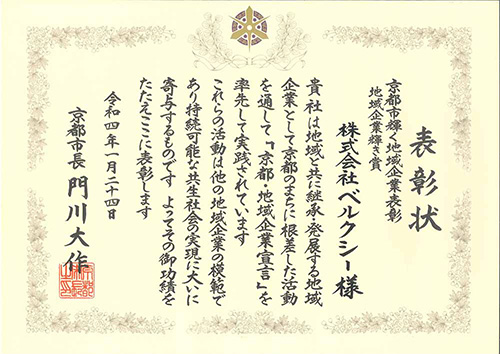 表彰状
京都市輝く地域企業表彰
地域企業輝き賞
株式会社ベルクシー様
貴社は地域と共に継承・発展する地域
企業として京都のまちに根差した活動
を通して「京都・地域企業宣言」を
率先して実践されています
これらの活動は他の地域企業の模範で
あり持続可能な共生社会の実現に大いに
寄与するものです よってその御功績を
たたえここに表彰します
令和四年一月二十四日
京都市長 門川大作